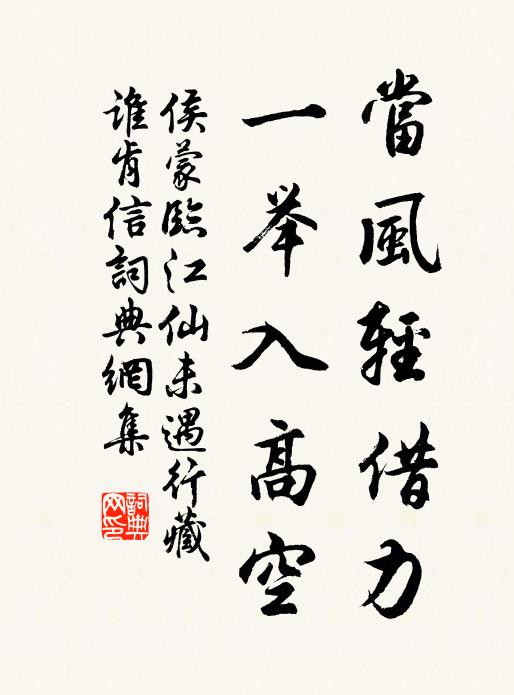 當風輕借力
一举入高空
侯蒙臨江仙未遇行藏
誰肯信詞典網集
詞典网印